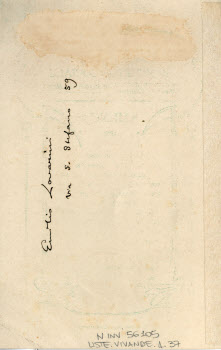 Emilio Lovarini
via S. Stefano 59
N INV 56105
LISTE.VIVANDE.1.37